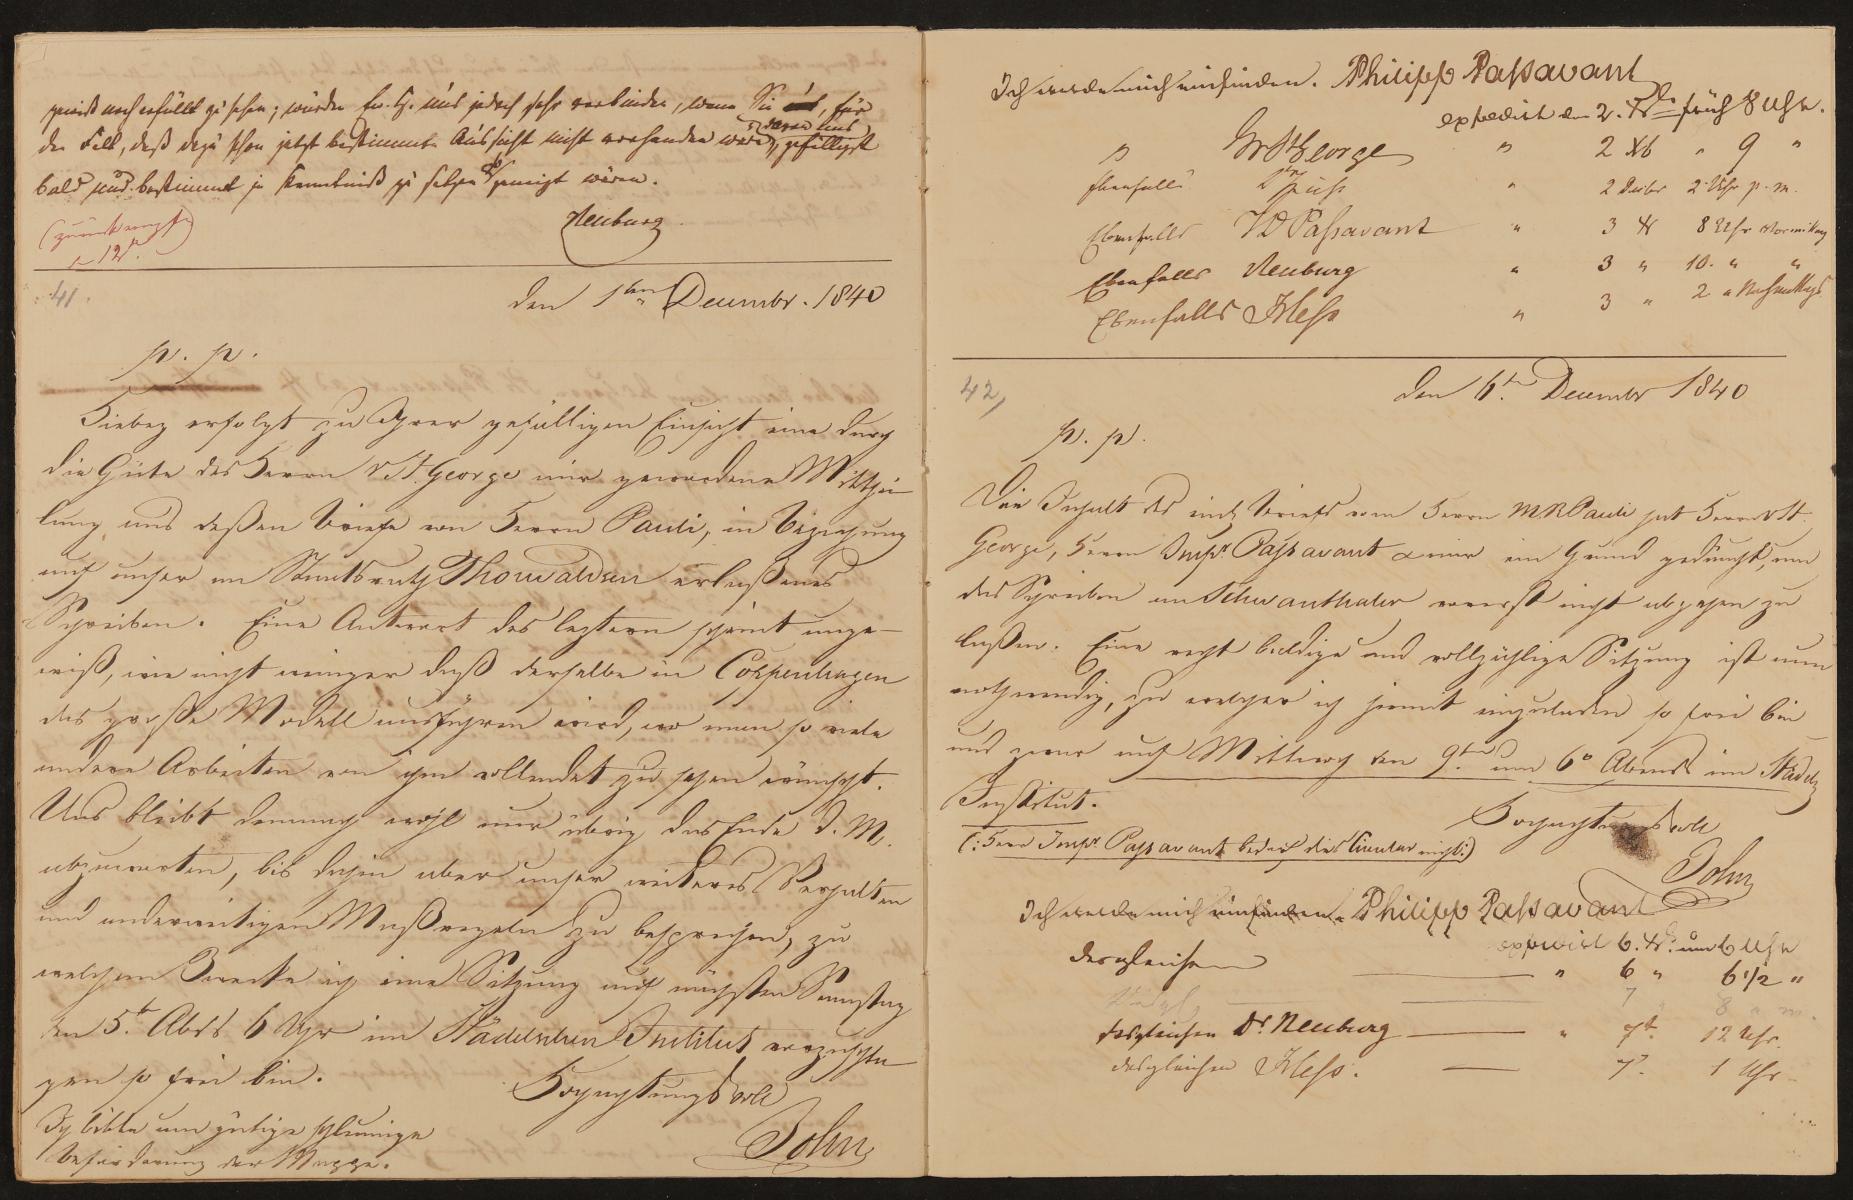 gewiß noch erfüllt zu sehen; würden Ew. H. uns jedoch sehr verbinden, wenn Sie für
den Fall, daß dazu schon jetzt bestimmte Aussicht nicht vorhanden wäre, davon uns gefälligst
bald und bestimmt in Kenntniß zu setzen geneigt wären.
Neuburg
41.
den 1ten Decembr. 1840
p. p.
Hiebey erfolgt zu Ihrer gefälligen Einsicht eine durch
die Güte des Herrn v St. George mir gewordene Mitthei-
lung aus deßen Briefe von Herrn Pauli, in Beziehung
auf unser an Staatsrath Thorwaldsen erlaßenes
Schreiben. Eine Antwort des leztern scheint unge-
wiß, wie nicht weniger daß derselbe in Coppenhagen
das große Modell ausführen wird, wo man so viele
andere Arbeiten von ihm vollendet zu sehen wünscht.
Uns bleibt demnach wohl nur übrig das Ende d. M.
abzuwarten, bis dahin aber unser weiteres Verhalten
und anderweitigen Maßregeln zu besprechen, zu
welchem Zwecke ich eine Sitzung auf nächsten Samstag
den 5.t Abds 6 Uhr im Städelschen Institut vorzuschla-
gen so frei bin.
Hochachtungsvoll
Ich bitte um gütige schleunige
Beförderung der Mappe.
John
Ich werde mich einfinden. Philipp Passavant
expedirt den 2. Xbr früh 8 Uhr.
" Gr StGeorge " 2 Xb " 9 "
Ebenfalls " 2 Decbr 2 Uhr p. m.
Ebenfalls JD Passavant " 3 X 8 Uhr Vormittag
Ebenfalls Neuburg " 3 " 10. " "
Ebenfalls Hess " 3 " 2 " Nachmittags
42,
den 6.tn Decembr 1840
p. p.
Der Inhalt des Briefs vom Herrn M R Pauli hat Herrn v St.
George, Herrn Inspr Passavant & mir ein Grund gedäucht, um
das Schreiben an Schwanthaler vorerst nicht abgehen zu
laßen. Eine recht baldige und vollzählige Sitzung ist nun
nothwendig, zu welcher ich hiemit einzuladen so frei bin
und zwar auf Mittwoch den 9.ten um 6 Abends im Städel
Institut.
Hochachtungsvoll
(: Herr Inspr Passavant bedarf des Circular nicht :)
John
Ich werde mich einfinden. Philipp Passavant
expedirt 6. Xbr. um 6 Uhr
desgleichen " 6 " 6 1/2 "
7 8
desgleichen Dr Neuburg " 7t. 12 Uhr.
desgleichen Hess. 7. 1 Uhr